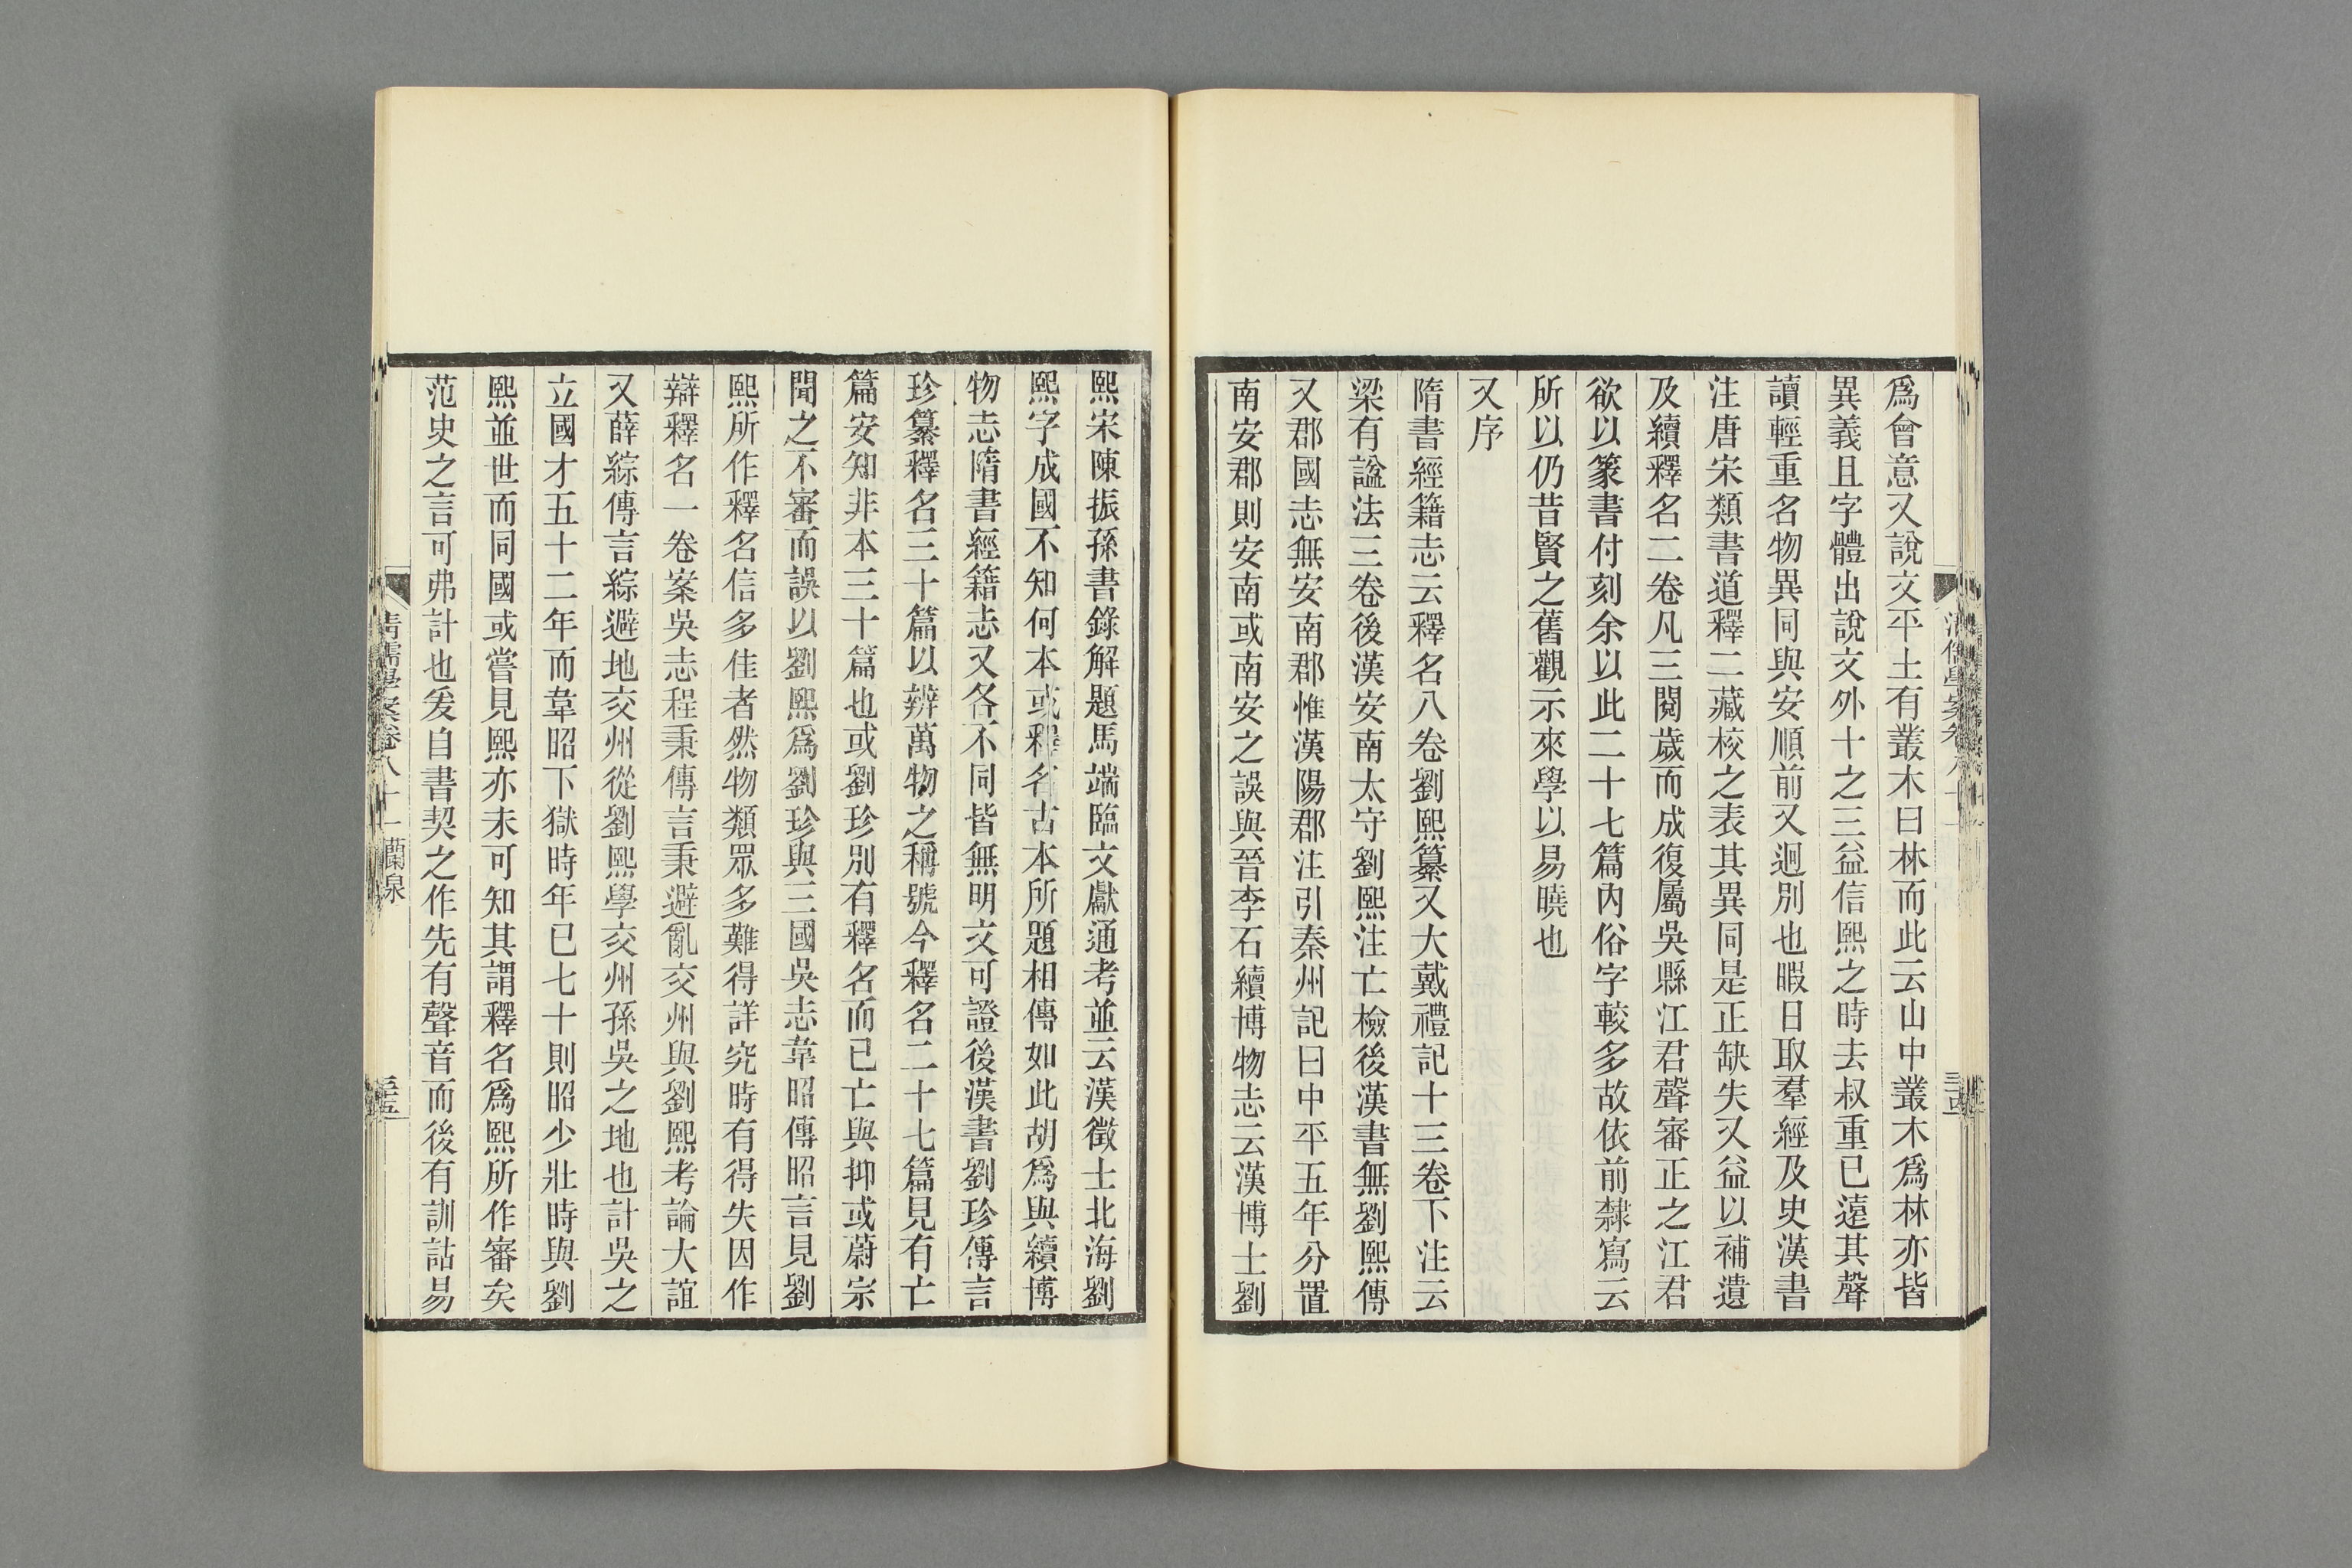 爲會意又說文平土有叢木曰林而此云山中叢木爲林亦皆
異義且字體出說文外十之三益信熙之時去叔重已遠其聲
讀輕重名物異同與安順前又迥別也暇日取羣經及史漢書
注唐宋類書道釋二藏校之表其異同是正缺失又益以補遺
及續釋名二卷凡三閱歲而成復屬吳縣江君聲審正之江君
欲以篆書付刻余以此二十七篇內俗字較多故依前隸寫云
所以仍昔賢之舊觀示來學以易曉也
又序
隋書經籍志云釋名八卷劉熙纂又大戴禮記十三卷下注云
梁有諡法三卷後漢安南太守劉熙注亡檢後漢書無劉熙傳
又郡國志無安南郡惟漢陽郡注引秦州記曰中平五年分置
南安郡則安南或南安之誤與晉李石續博物志云漢博士劉
熙宋陳振孫書錄解題馬端臨文獻通考並云漢徵士北海劉
熙字成國不知何本或釋名古本所題相傳如此胡爲與續博
物志隋書經籍志又各不同皆無明文可證後漢書劉珍傳言
珍纂釋名三十篇以辨萬物之稱號今釋名二十七篇見有亡
篇安知非本三十篇也或劉珍別有釋名而已亡與抑或蔚宗
聞之不審而誤以劉熙爲劉珍與三國吳志韋昭傳昭言見劉
熙所作釋名信多佳者然物類眾多難得詳究時有得失因作
辯釋名一卷案吳志程秉傳言秉避亂交州與劉熙考論大誼
又薛綜傳言綜避地交州從劉熙學交州孫吳之地也計吳之
立國才五十二年而韋昭下獄時年已七十則昭少壯時與劉
熙並世而同國或嘗見熙亦未可知其謂釋名爲熙所作審矣
范史之言可弗計也爰自書契之作先有聲音而後有訓詁易
清儒學案卷八十一 蘭泉
三五